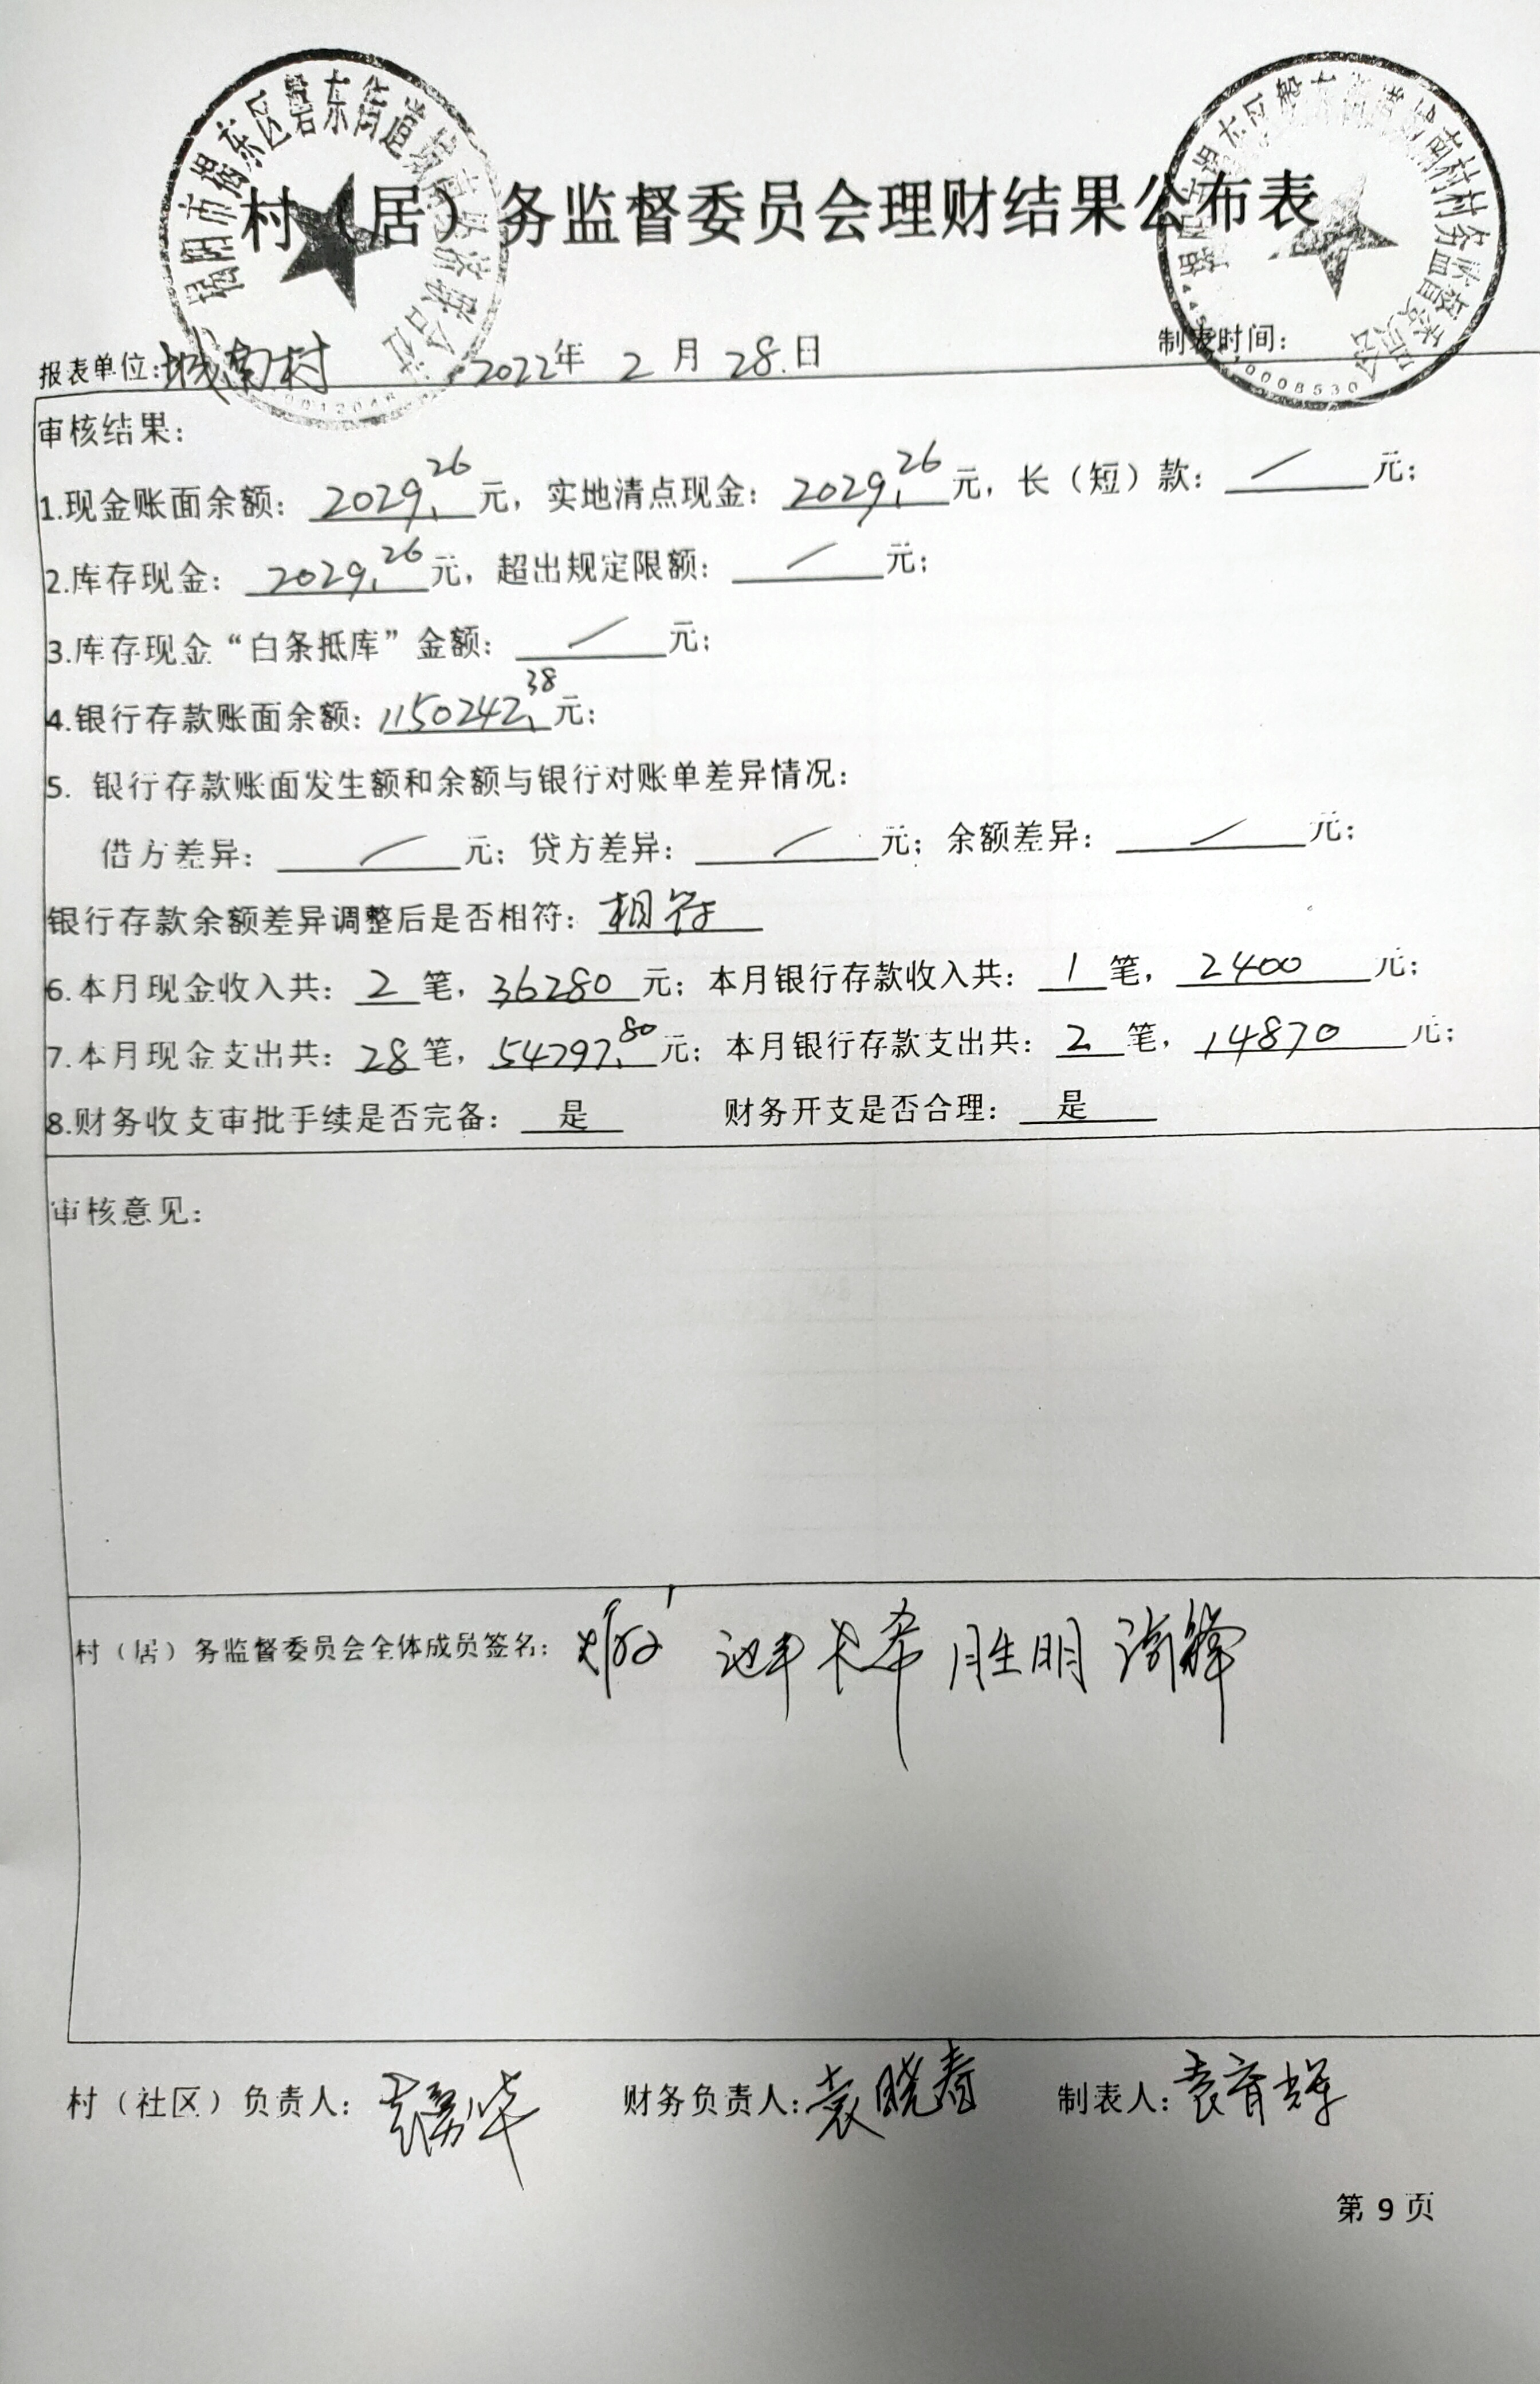 揭阳市揭东区磐东街道城南经济联合社
村（居）务监督委员会理财结果公布表
报表单位：城南村 2022年 2 月 28日 制表时间：
审核结果：
1.现金账面余额：2029.26元，实地清点现金：2029.26元，长（短）款：／元；
2.库存现金：2029.26元，超出规定限额：／元；
3.库存现金“白条抵库”金额：／元；
4.银行存款账面余额：1150242.38元；
5. 银行存款账面发生额和余额与银行对账单差异情况：
借方差异：／元；贷方差异：／元；余额差异：／元；
银行存款余额差异调整后是否相符：相符
6.本月现金收入共：2笔，36280元；本月银行存款收入共：1笔，2400元；
7.本月现金支出共：28笔，54797.80元；本月银行存款支出共：2笔，14870元；
8.财务收支审批手续是否完备：是 财务开支是否合理：是
审核意见：
村（居）务监督委员会全体成员签名：胜明
村（社区）负责人： 财务负责人：袁晓春 制表人：袁育辉
第 9 页